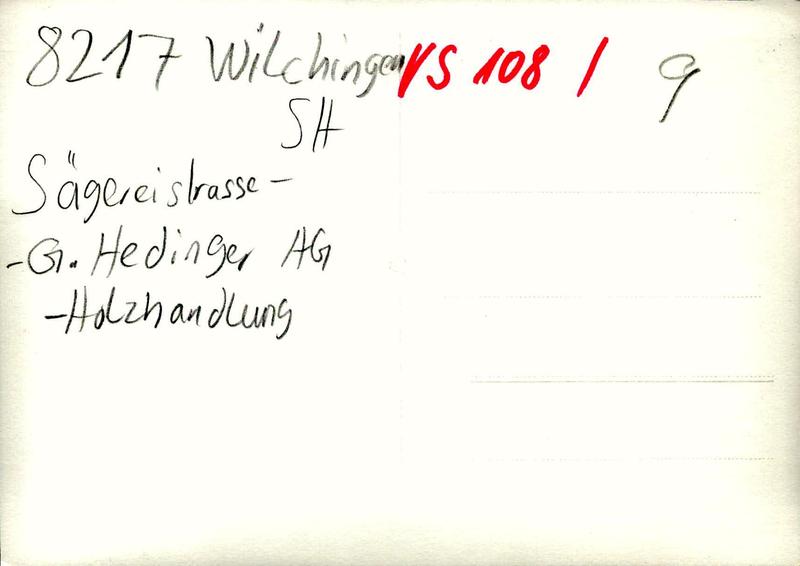 8217 Wilchingen VS 108 / 9
SH
Sägereistrasse-
-G. Hedinger AG
-Holzhandlung